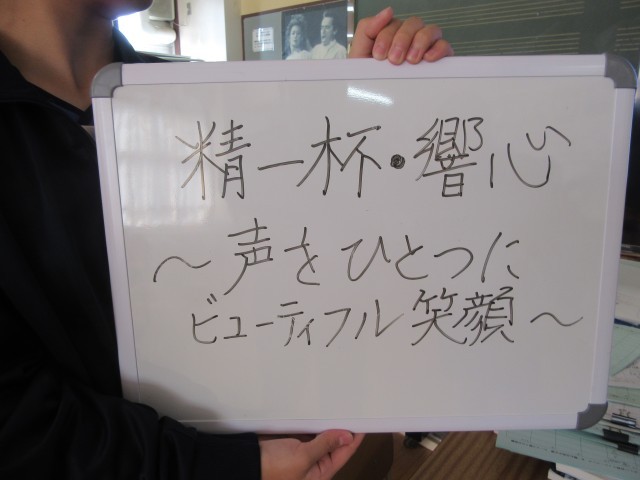 精一杯・響心
～声をひとつに
ビューティフル笑顔～